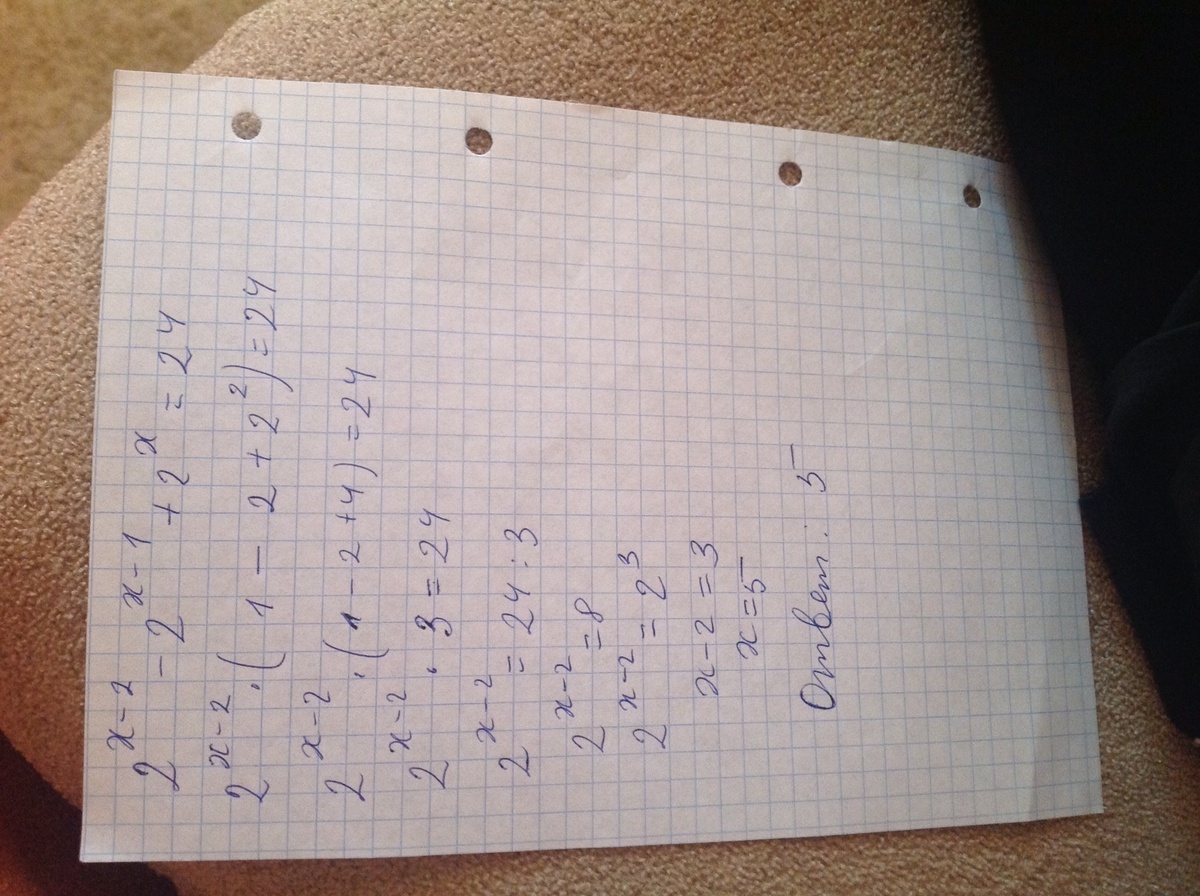 2^{x-2} - 2^{x-1} + 2^x = 24
2^{x-2} · (1 - 2 + 2^2) = 24
2^{x-2} · (1 - 2 + 4) = 24
2^{x-2} · 3 = 24
2^{x-2} = 24 : 3
2^{x-2} = 8
2^{x-2} = 2^3
x - 2 = 3
x = 5
Ответ: 5